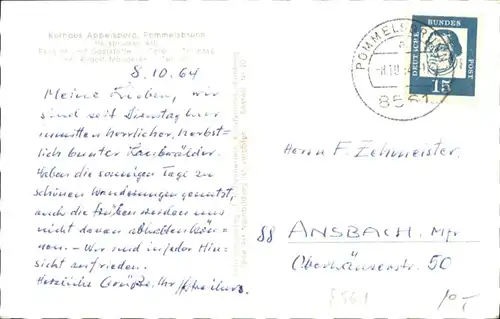 Kurhaus Appelsberg, Pommelsbrunn
8.10.64
Meine Lieben, wir
sind seit Dienstag hier
inmitten herrlicher, herbst-
lich bunter Laubwälder.
Haben die sonnigen Tage zu
schönen Wanderungen genutzt,
auch die trüben werden uns
nicht davon abhalten kön-
nen. – Wir sind in jeder Hin-
sicht zufrieden.
Herzliche Grüße, Ihr
POMMELSBRUNN
8561
DEUTSCHE BUNDESPOST
15
Herrn F. Zehmeister.
88 ANSBACH. Mfr
Oberhäuserstr. 50
10,-